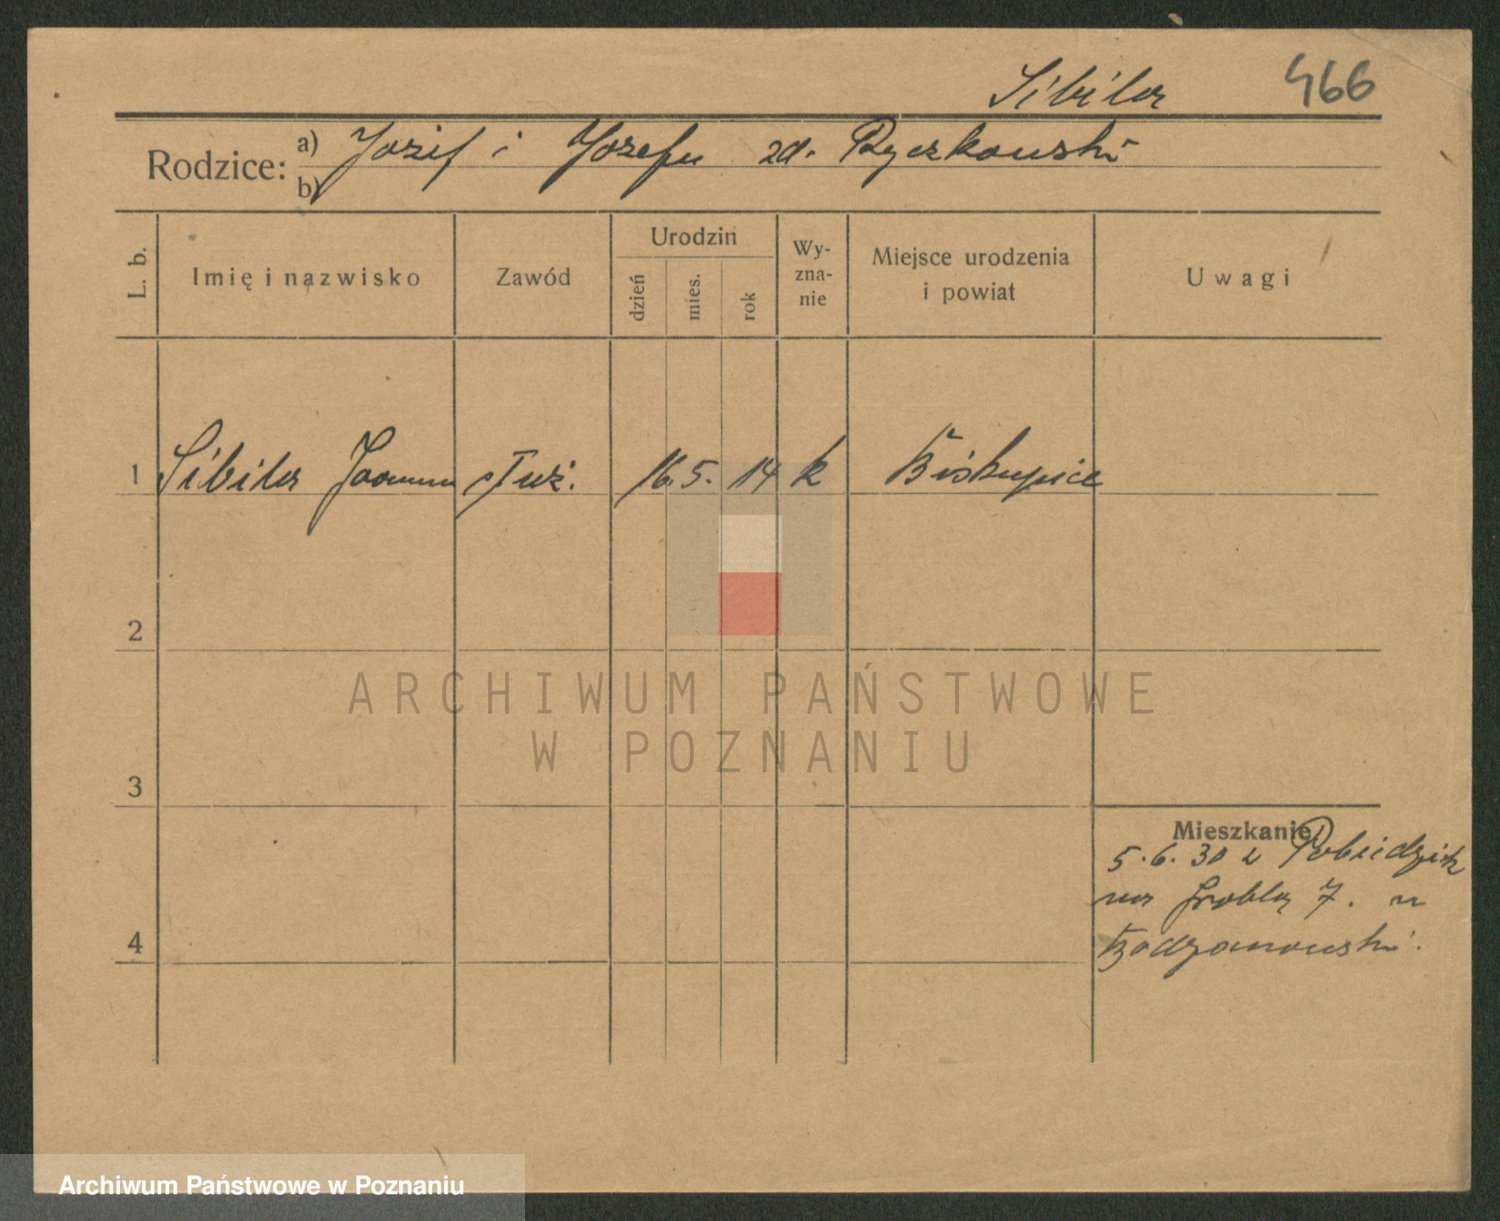 Sibila 466
Rodzice: a) Józef i Józefa zd. Ryczkowski
b)
L. b. Imię i nazwisko Zawód Urodzin dzień mies. rok Wyznanie Miejsce urodzenia i powiat Uwagi
1 Sibila Joanna służ. 16. 5. 14 k Biskupice
2
3
4
Mieszkanie
5.6.30 z Pobiedzisk
na Groblą 7. u
Bodzanowski.
ARCHIWUM PAŃSTWOWE
W POZNANIU
Archiwum Państwowe w Poznaniu